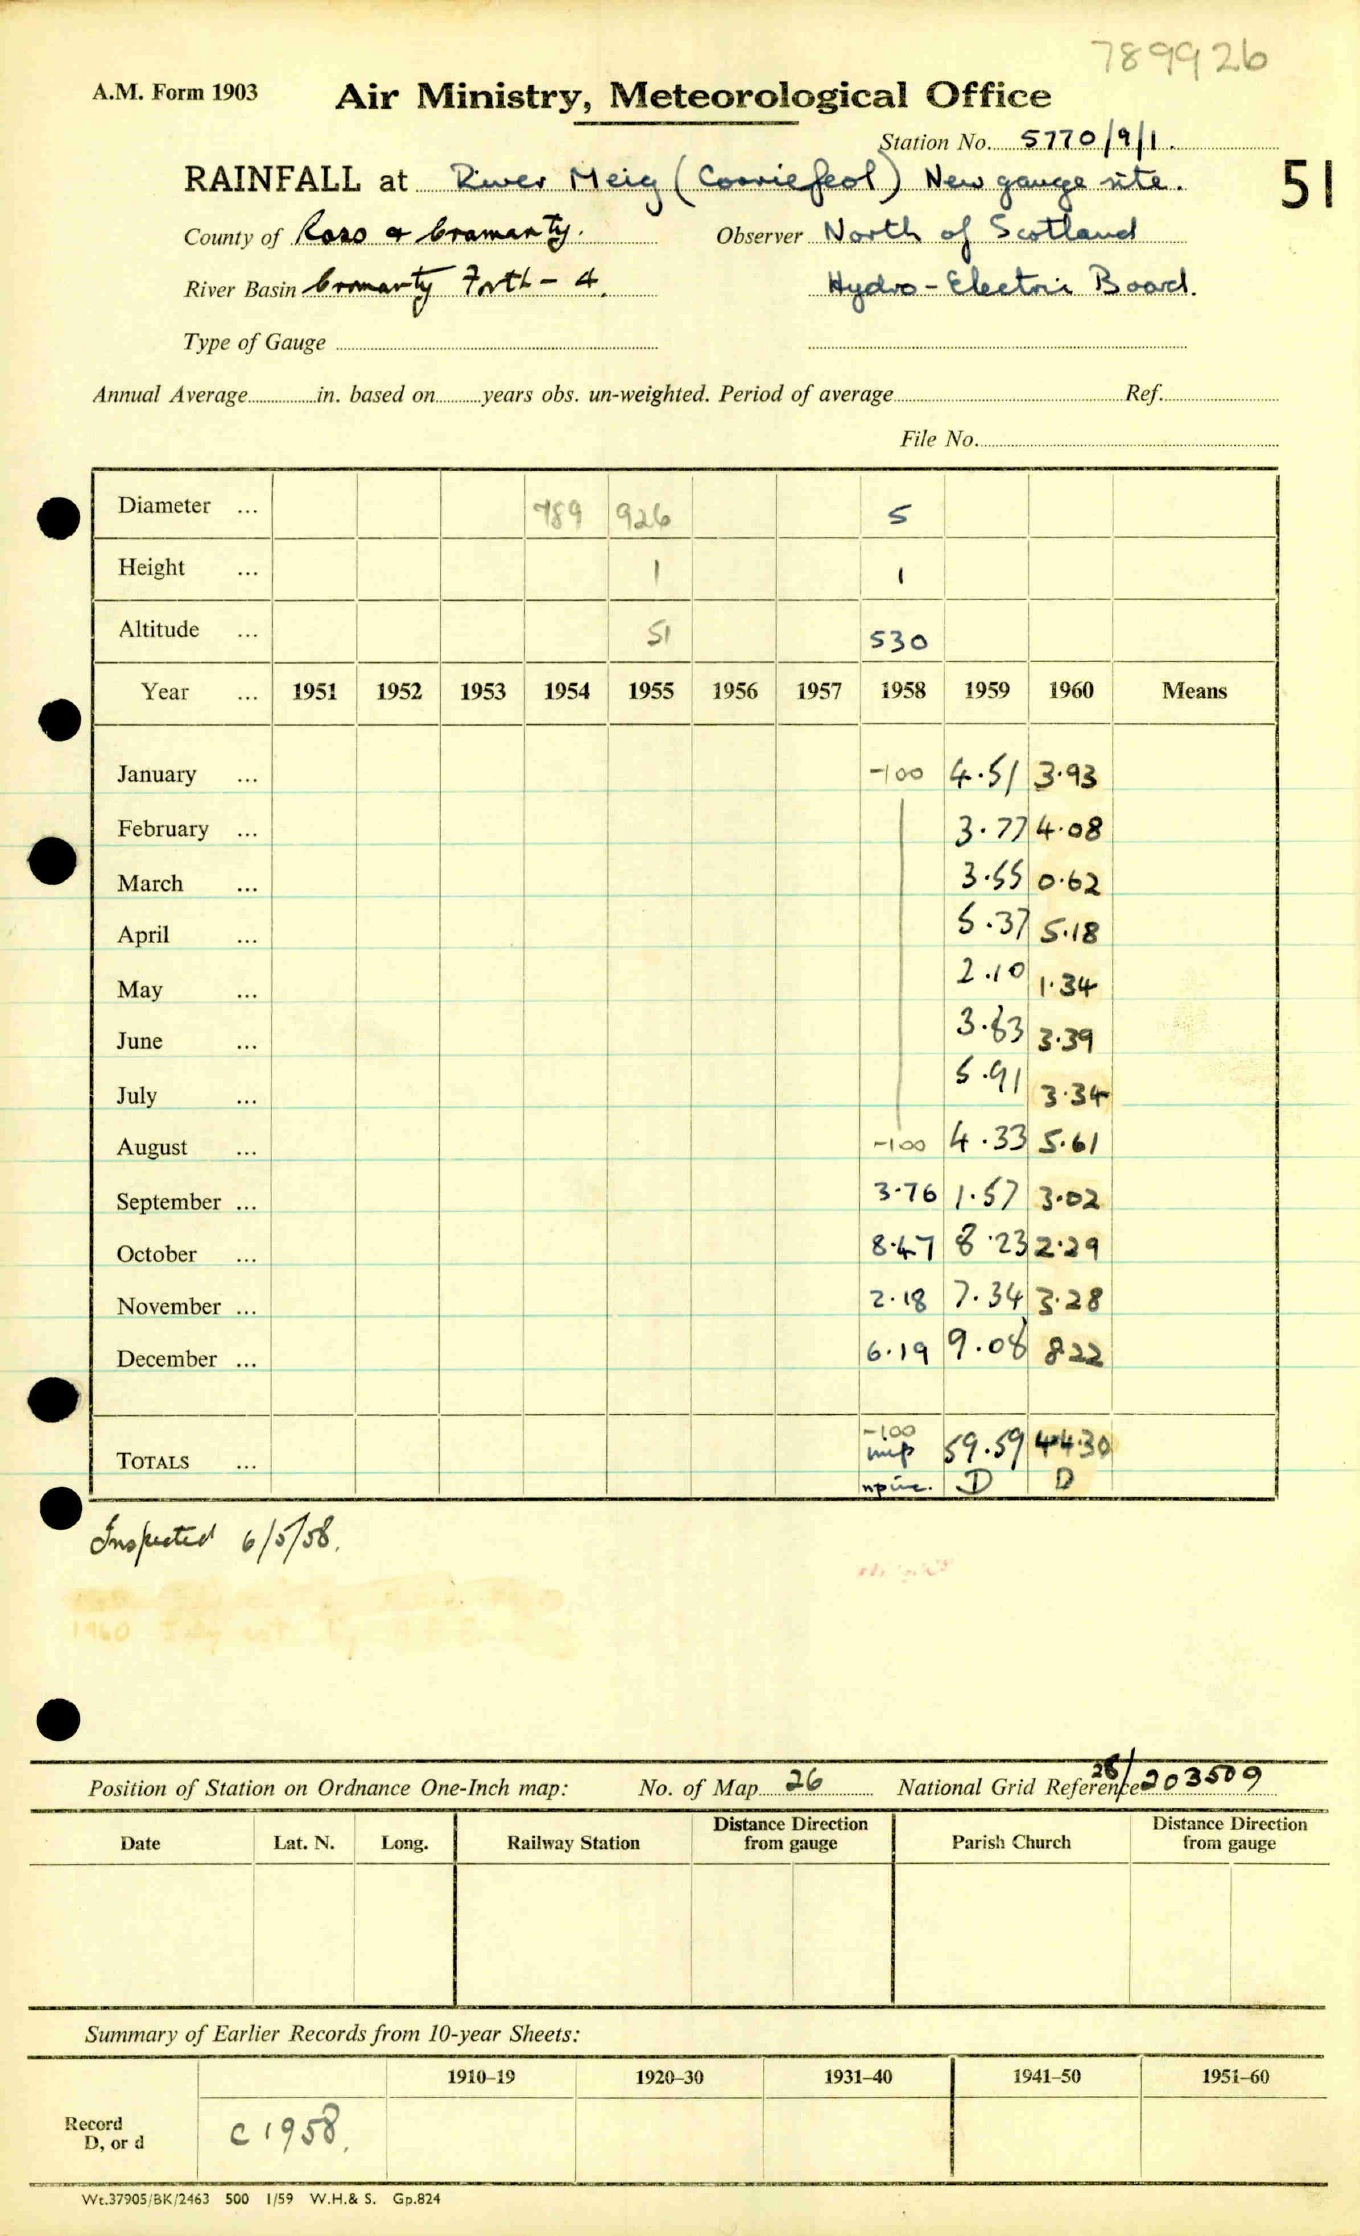 789926
A.M. Form 1903 Air Ministry, Meteorological Office
Station No. 5770/9/1.
RAINFALL at River Meig (Corriefeol) New gauge site. 51
County of Ross & Cromarty. Observer North of Scotland
River Basin Cromarty Forth - 4. Hydro-Electric Board.
Type of Gauge
Annual Average in. based on years obs. un-weighted. Period of average Ref.
File No.
Diameter ... 789 926 5
Height ... 1 1
Altitude ... 51 530
Year ... 1951 1952 1953 1954 1955 1956 1957 1958 1959 1960 Means
January ... -100 4.51 3.93
February ... 3.77 4.08
March ... 3.55 0.62
April ... 5.37 5.18
May ... 2.10 1.34
June ... 3.83 3.39
July ... 5.91 3.34
August ... -100 4.33 5.61
September ... 3.76 1.57 3.02
October ... 8.47 8.23 2.29
November ... 2.18 7.34 3.28
December ... 6.19 9.08 8.22
-100
TOTALS ... 59.59 44.30
D D
Inspected 6/5/58.
1960 July
Position of Station on Ordnance One-Inch map: No. of Map 26 National Grid Reference 28/203509
Date Lat. N. Long. Railway Station Distance Direction from gauge Parish Church Distance Direction from gauge
Summary of Earlier Records from 10-year Sheets:
1910–19 1920–30 1931–40 1941–50 1951–60
Record
D, or d C 1958.
Wt.37905/BK/2463 500 1/59 W.H.& S. Gp.824